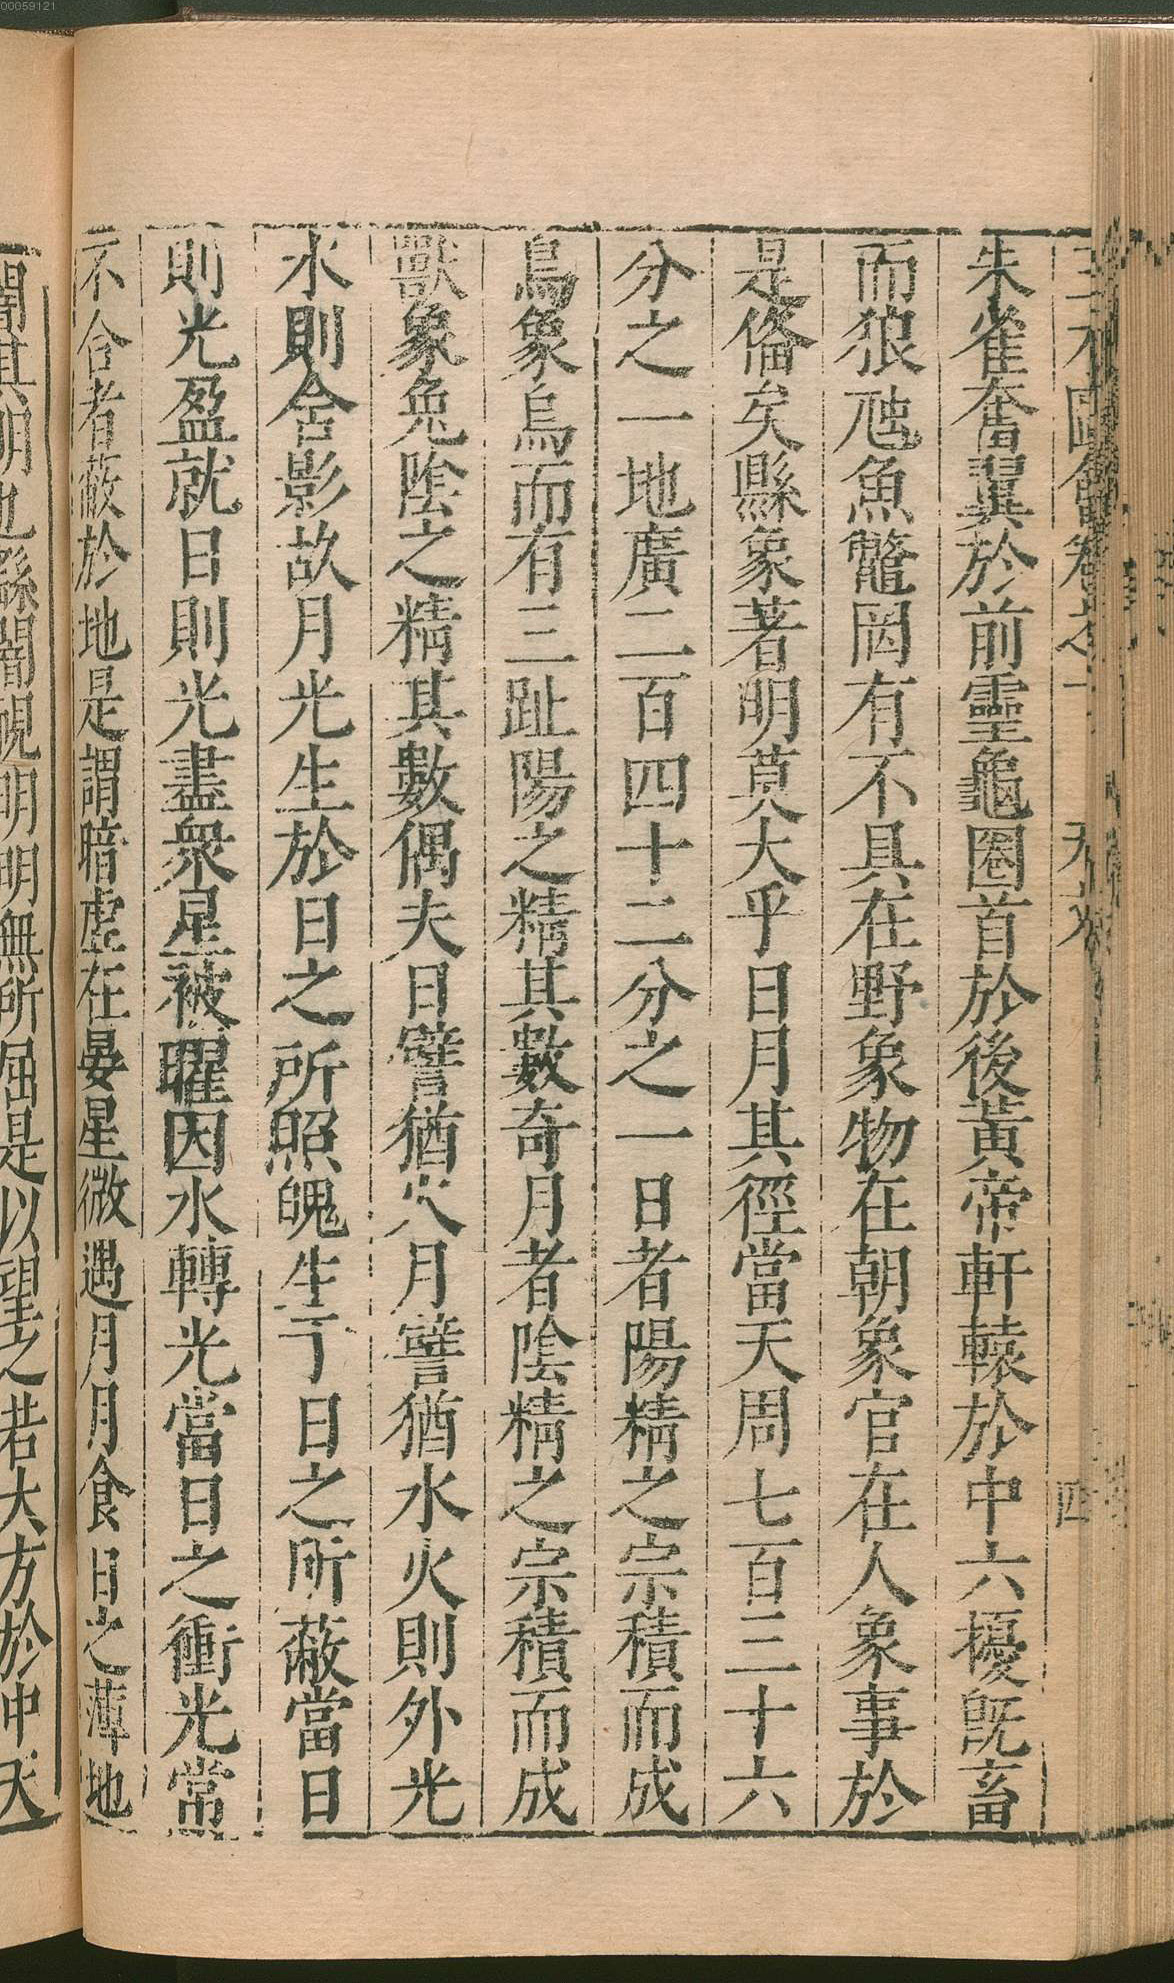 00059121
朱雀奮翼於前靈龜圈首於後黃帝軒轅於中六擾旣畜
而狼虵魚鼈罔有不具在野象物在朝象官在人象事於
是偹矣縣象著明莫大乎日月其徑當天周七百三十六
分之一地廣二百四十二分之一日者陽精之宗積而成
鳥象烏而有三趾陽之精其數奇月者陰精之宗積而成
獸象兔陰之精其數偶夫日譬猶火月譬猶水火則外光
水則含影故月光生於日之所照魄生于日之所蔽當日
則光盈就日則光盡衆星被曜因水轉光當日之衝光常
不合者蔽於地是謂暗虛在晏星微遇月月食日之薄地
闇其明也繇闇視明明無所屈是以望之若大方於中天